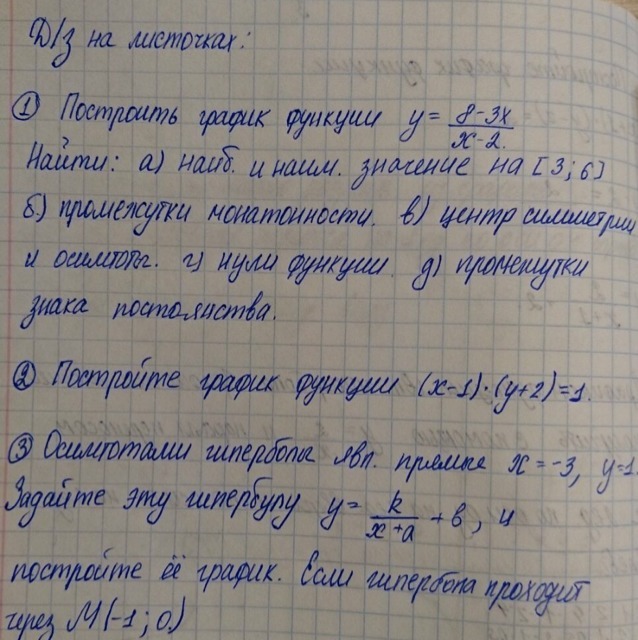 Д/з на листочках:
① Построить график функции y = (8-3x)/(x-2.)
Найти: а) наиб. и наим. значение на [3; 6]
б.) промежутки монатонности. в) центр симметрии
и осимтоты. г) нули функции. д) промежутки
знака постоянства.
② Постройте график функции (x-1)·(y+2)=1.
③ Осимтотами гиперболы явл. прямые x=-3, y=1.
Задайте эту гиперболу y = k/(x+a) + в, и
постройте её график. Если гипербола проходит
через M(-1; 0.)